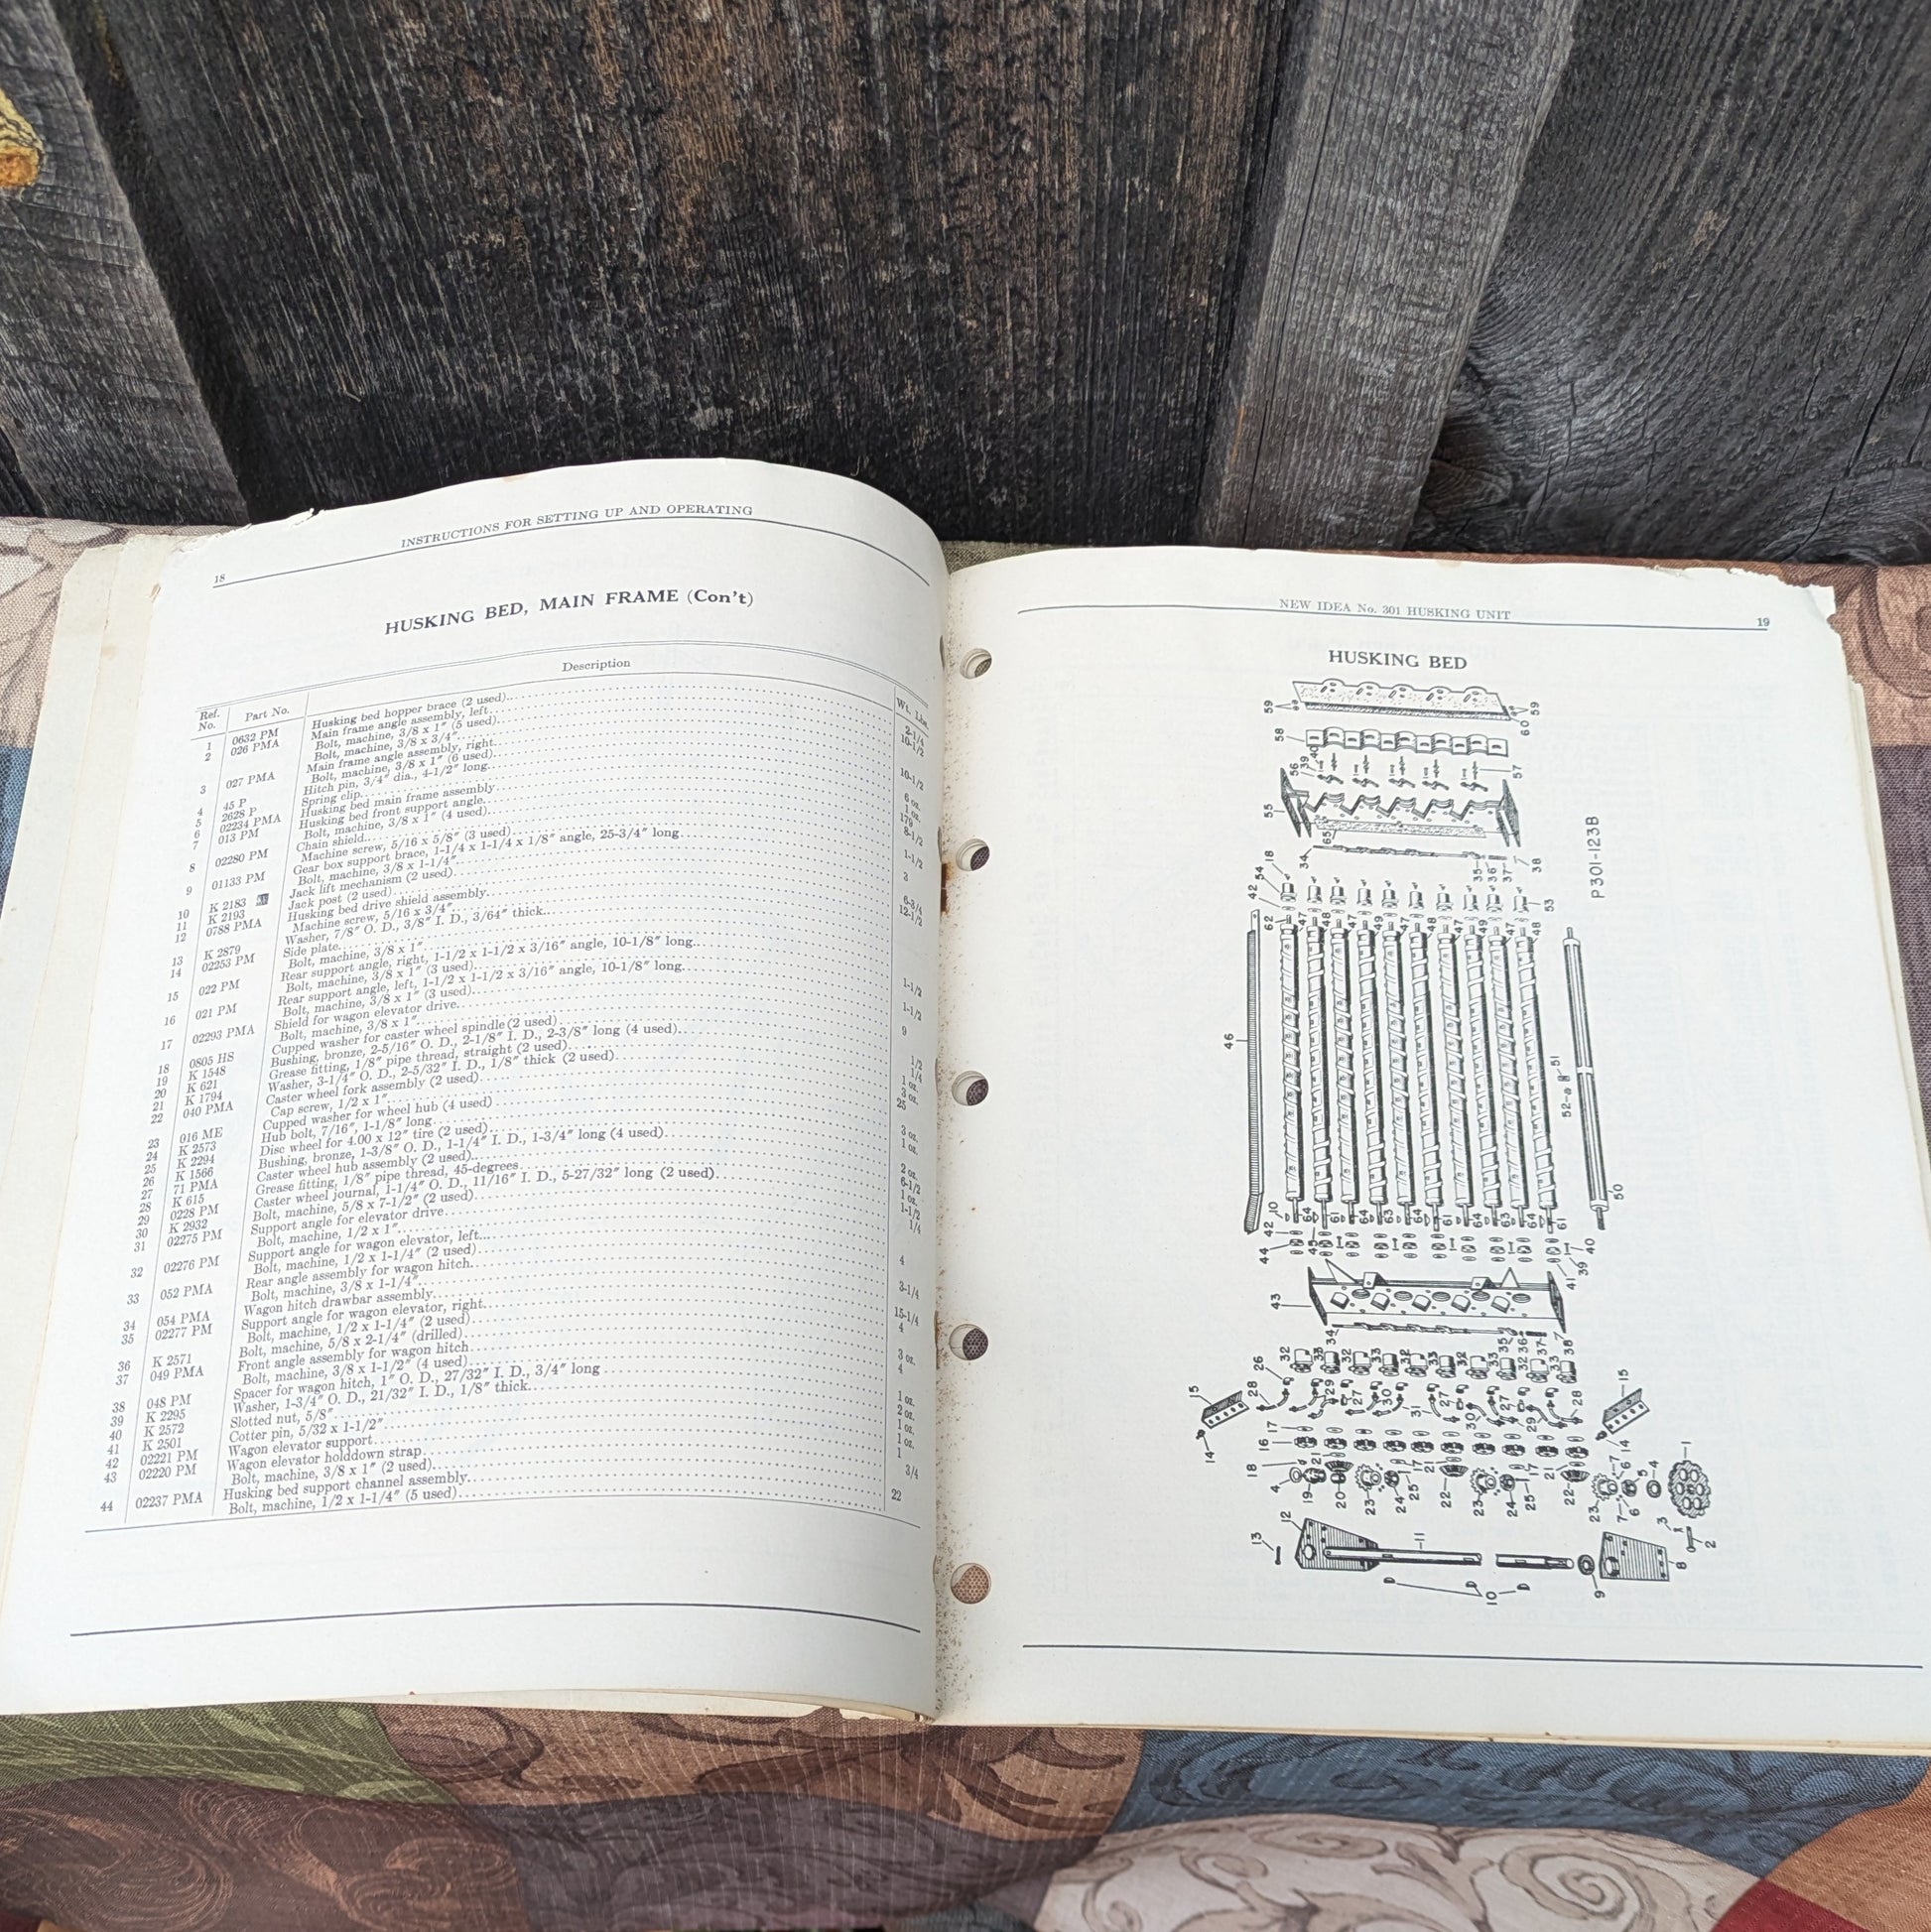 18
INSTRUCTIONS FOR SETTING UP AND OPERATING
HUSKING BED, MAIN FRAME (Con't)
Ref. No. Part No. Description Wt. Lbs.
1 0632 PM Husking bed hopper brace (2 used) 2-1/4
2 026 PMA Main frame angle assembly, left 10-1/2
Bolt, machine, 3/8 x 1″ (5 used)
Bolt, machine, 3/8 x 3/4″
3 027 PMA Main frame angle assembly, right 10-1/2
Bolt, machine, 3/8 x 1″ (6 used)
4 45 P Hitch pin, 3/4″ dia., 4-1/2″ long 6 oz.
5 2628 P Spring clip 1 oz.
6 02234 PMA Husking bed main frame assembly 179
7 013 PM Husking bed front support angle 8-1/2
Bolt, machine, 3/8 x 1″ (4 used)
8 02280 PM Chain shield 1-1/2
Machine screw, 5/16 x 5/8″ (3 used)
9 01133 PM Gear box support brace, 1-1/4 x 1-1/4 x 1/8″ angle, 25-3/4″ long 3
Bolt, machine, 3/8 x 1-1/4″
10 K 2183 Jack lift mechanism (2 used) 6-3/4
11 K 2193 Jack post (2 used) 12-1/2
12 0788 PMA Husking bed drive shield assembly
Machine screw, 5/16 x 3/4″
13 K 2879 Washer, 7/8″ O. D., 3/8″ I. D., 3/64″ thick
14 02253 PM Side plate
Bolt, machine, 3/8 x 1″
15 022 PM Rear support angle, right, 1-1/2 x 1-1/2 x 3/16″ angle, 10-1/8″ long 1-1/2
Bolt, machine, 3/8 x 1″ (3 used)
16 021 PM Rear support angle, left, 1-1/2 x 1-1/2 x 3/16″ angle, 10-1/8″ long 1-1/2
Bolt, machine, 3/8 x 1″ (3 used)
17 02293 PMA Shield for wagon elevator drive 9
Bolt, machine, 3/8 x 1″
18 0805 HS Cupped washer for caster wheel spindle (2 used) 1/2
19 K 1548 Bushing, bronze, 2-5/16″ O. D., 2-1/8″ I. D., 2-3/8″ long (4 used) 1/4
20 K 621 Grease fitting, 1/8″ pipe thread, straight (2 used) 1 oz.
21 K 1794 Washer, 3-1/4″ O. D., 2-5/32″ I. D., 1/8″ thick (2 used) 3 oz.
22 040 PMA Caster wheel fork assembly (2 used) 25
Cap screw, 1/2 x 1″
23 016 ME Cupped washer for wheel hub (4 used) 3 oz.
24 K 2573 Hub bolt, 7/16″, 1-1/8″ long 1 oz.
25 K 2294 Disc wheel for 4.00 x 12″ tire (2 used)
26 K 1566 Bushing, bronze, 1-3/8″ O. D., 1-1/4″ I. D., 1-3/4″ long (4 used) 2 oz.
27 71 PMA Caster wheel hub assembly (2 used) 6-1/2
28 K 615 Grease fitting, 1/8″ pipe thread, 45-degrees 1 oz.
29 0228 PM Caster wheel journal, 1-1/4″ O. D., 11/16″ I. D., 5-27/32″ long (2 used) 1-1/2
30 K 2932 Bolt, machine, 5/8 x 7-1/2″ (2 used) 1/4
31 02275 PM Support angle for elevator drive
Bolt, machine, 1/2 x 1″
32 02276 PM Support angle for wagon elevator, left 4
Bolt, machine, 1/2 x 1-1/4″ (2 used)
33 052 PMA Rear angle assembly for wagon hitch 3-1/4
Bolt, machine, 3/8 x 1-1/4″
34 054 PMA Wagon hitch drawbar assembly 15-1/4
35 02277 PM Support angle for wagon elevator, right 4
Bolt, machine, 1/2 x 1-1/4″ (2 used)
36 K 2571 Bolt, machine, 5/8 x 2-1/4″ (drilled) 3 oz.
37 049 PMA Front angle assembly for wagon hitch 4
Bolt, machine, 3/8 x 1-1/2″ (4 used)
38 048 PM Spacer for wagon hitch, 1″ O. D., 27/32″ I. D., 3/4″ long 1 oz.
39 K 2295 Washer, 1-3/4″ O. D., 21/32″ I. D., 1/8″ thick 2 oz.
40 K 2572 Slotted nut, 5/8″ 1 oz.
41 K 2501 Cotter pin, 5/32 x 1-1/2″ 1 oz.
42 02221 PM Wagon elevator support 1
43 02220 PM Wagon elevator holddown strap 3/4
Bolt, machine, 3/8 x 1″ (2 used)
44 02237 PMA Husking bed support channel assembly 22
Bolt, machine, 1/2 x 1-1/4″ (5 used)
NEW IDEA No. 301 HUSKING UNIT
19
HUSKING BED
59 59
60
58
40
39
56 57
55
65
34
18
54
42
35 36 37 38
53
62 47 48 47 49 47 48 47 49 47 48
46
51
52
50
10
42
44
45
64 61 64 63 64 61 64 63 64 61
40
39
41
43
34
35 36 37 38
26 32 33 32 33 32 33 32 33 32 33
15 28 29 27 30 31 27 30 27 29 28 15
14 17 16 18 14
4 19 20 21 23 24 25 17 21 22 23 24 25 17 21 22 23 7 6 5 4 1
13 12 11 10 9 8 3 2
P301-123B